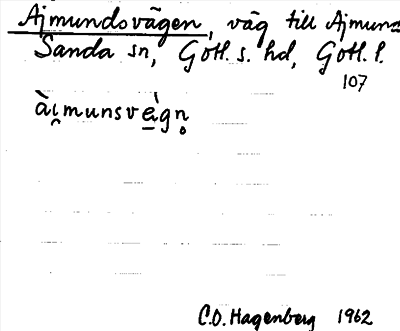 Ajmundsvägen, väg till Ajmunds
Sanda sn, Gotl. s. hd, Gotl. l.
107
ài̯munsvè̱gn̥
C.O. Hagenberg 1962